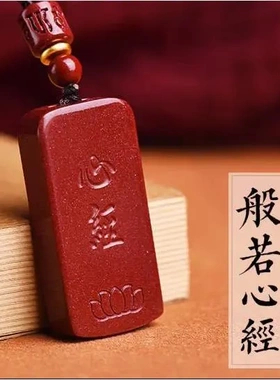 心
經
般若心經